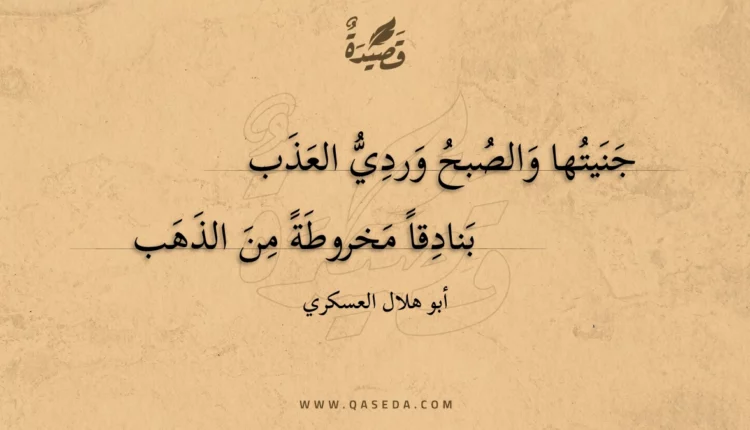 قَصِيْدَةٌ
جَنَيتُها وَالصُبحُ وَردِيُّ العَذَب
بَنادِقاً مَخروطَةً مِنَ الذَهَب
أبو هلال العسكري
WWW.QASEDA.COM